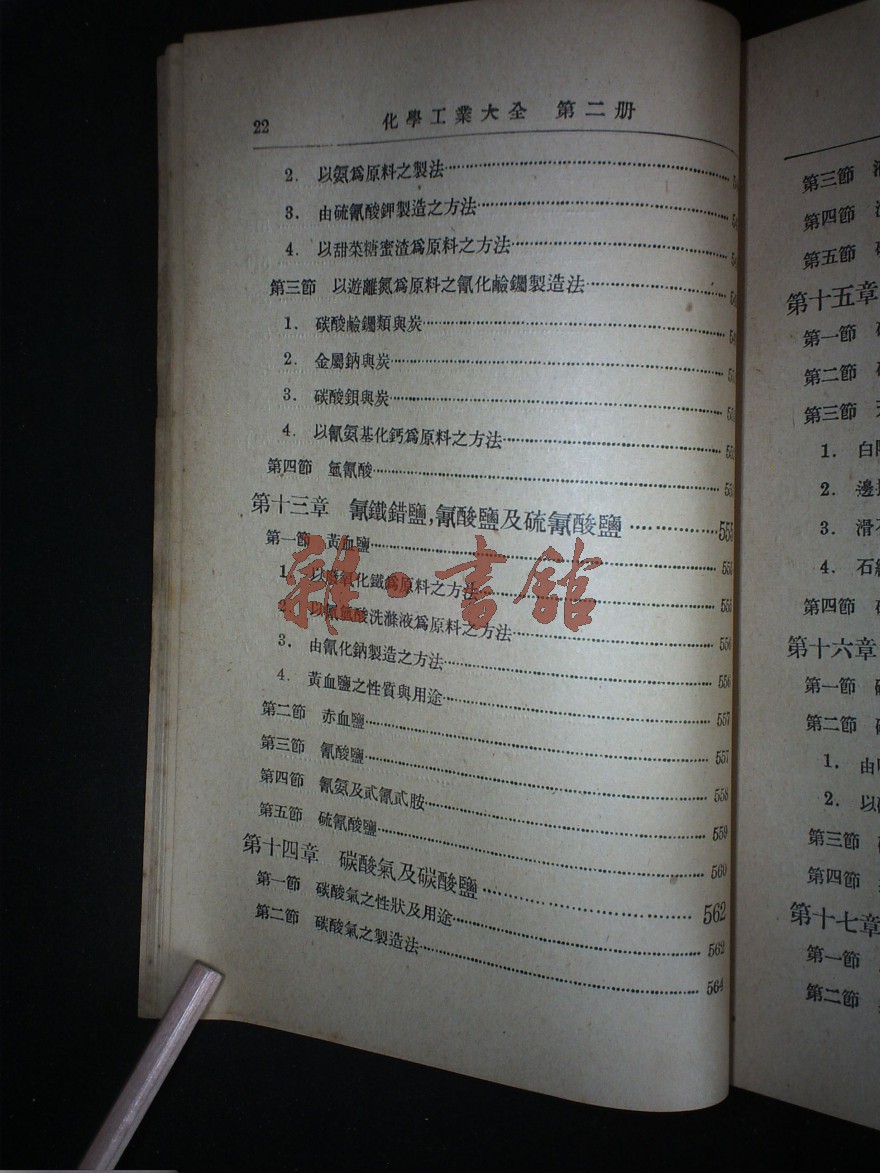 22 化學工業大全 第二册
2. 以氨爲原料之製法
3. 由硫氰酸鉀製造之方法
4. 以甜菜糖蜜渣爲原料之方法
第三節 以遊離氮爲原料之氰化鹼鑭製造法
1. 碳酸鹼鑭類與炭
2. 金屬鈉與炭
3. 碳酸鋇與炭
4. 以氰氨基化鈣爲原料之方法
第四節 氫氰酸
第十三章 氰鐵錯鹽,氰酸鹽及硫氰酸鹽 555
第一節 黃血鹽 555
1. 以廢氧化鐵爲原料之方法 555
2. 以氰氫酸洗滌液爲原料之方法 556
3. 由氰化鈉製造之方法 556
4. 黃血鹽之性質與用途 557
第二節 赤血鹽 557
第三節 氰酸鹽 558
第四節 氰氨及貳氰貳胺 559
第五節 硫氰酸鹽 560
第十四章 碳酸氣及碳酸鹽 562
第一節 碳酸氣之性狀及用途 562
第二節 碳酸氣之製造法 564
雜·書館
第三節
第四節
第五節
第十五章
第一節
第二節
第三節
1. 白
2. 邊
3. 滑
4. 石
第四節
第十六章
第一節
第二節
1. 由
2. 以
第三節
第四節
第十七章
第一節
第二節